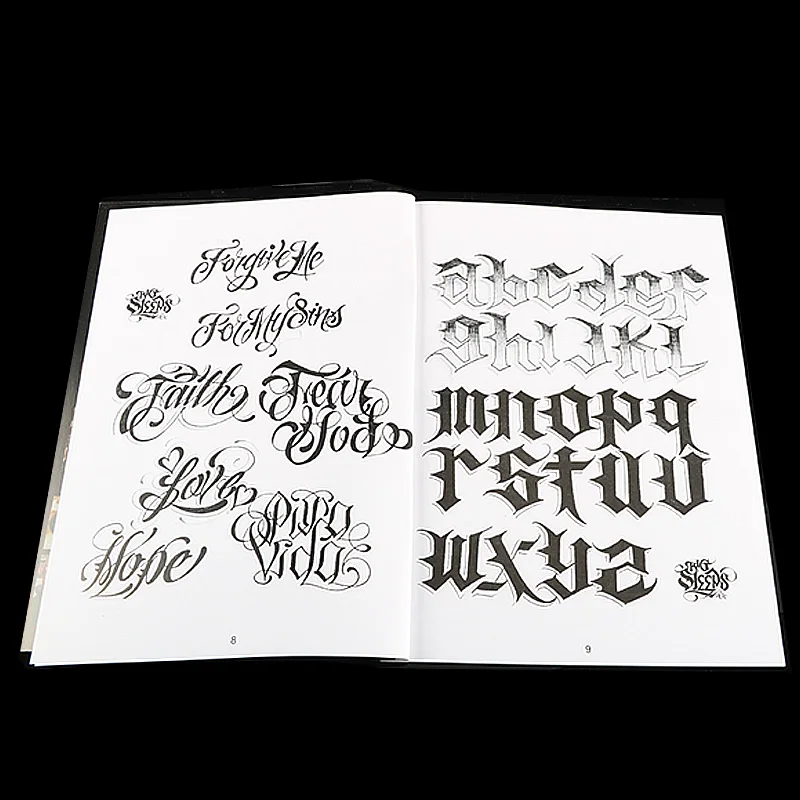 Forgive Me
BIG
SLEEPS
For My Sins
Faith
Fear
God
Love
Pura
Vida
Hope
8
abcdef
ghijkl
mnopq
rstuv
wxyz
BIG
SLEEPS
9